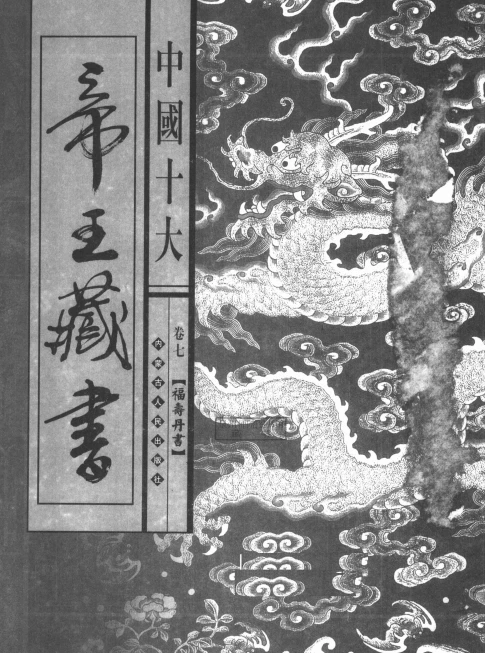 中國十大
帝王藏書
卷七
【福壽丹書】
内蒙古人民出版社